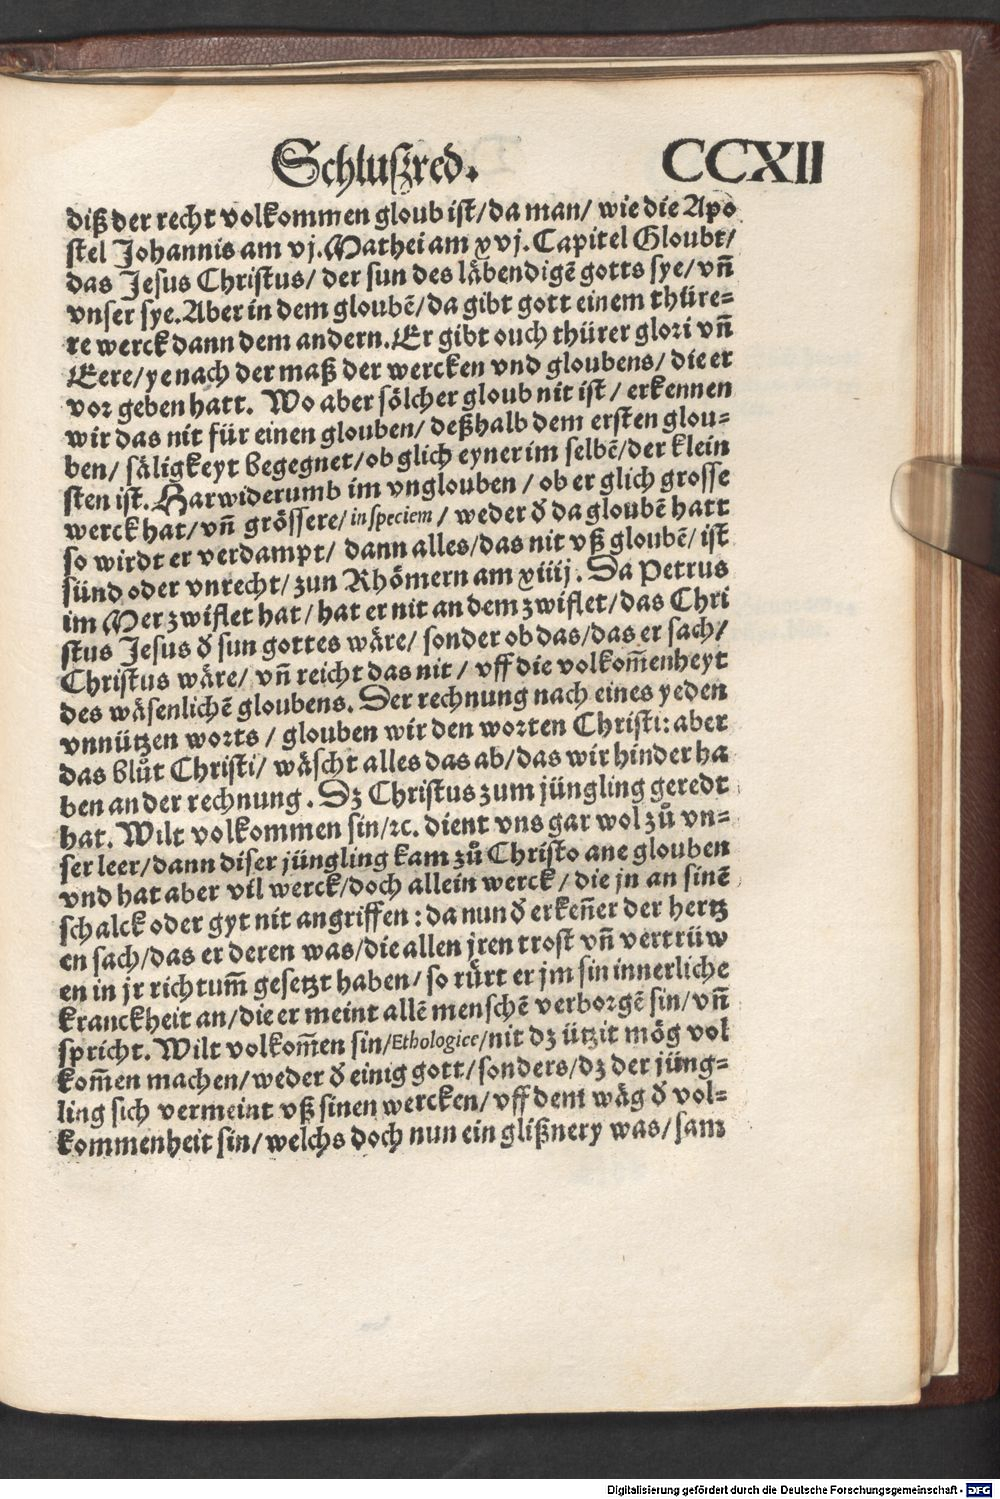 Schluſzred.
CCXII
diß der recht volkommen gloub iſt/ da man/ wie die Apo
ſtel Johannis am vj. Mathei am xvj. Capitel Gloubt/
das Jeſus Chriſtus/ der ſun des läbendigē gotts ſye/ vñ
vnſer ſye. Aber in dem gloubē/ da gibt gott einem thüre⸗
re werck dann dem andern. Er gibt ouch thürer glori vñ
Eere/ ye nach der maß der wercken vnd gloubens/ die er
vor geben hatt. Wo aber ſölcher gloub nit iſt/ erkennen
wir das nit für einen glouben/ deßhalb dem erſten glou⸗
ben/ ſäligkeyt begegnet/ ob glich eyner im ſelbē/ der klein
ſten iſt. Harwiderumb im vnglouben / ob er glich groſſe
werck hat/ vñ gröſſere/ in ſpeciem / weder d̕ da gloubē hatt
ſo wirdt er verdampt/ dann alles/ das nit vß gloubē/ iſt
ſünd oder vnrecht/ zun Rhömern am xiiij. Da Petrus
im Mer zwiflet hat/ hat er nit an dem zwiflet/ das Chri
ſtus Jeſus d̕ ſun gottes wäre/ ſonder ob das/ das er ſach/
Chriſtus wäre/ vñ reicht das nit / vff die volkom̄enheyt
des wäſenlichē gloubens. Der rechnung nach eines yeden
vnnützen worts / glouben wir den worten Chriſti: aber
das blůt Chriſti/ wäſcht alles das ab/ das wir hinder ha
ben an der rechnung. Dz Chriſtus zum jüngling geredt
hat. Wilt volkommen ſin/ ꝛc. dient vns gar wol zů vn⸗
ſer leer/ dann diſer jüngling kam zů Chriſto ane glouben
vnd hat aber vil werck/ doch allein werck / die jn an ſinē
ſchalck oder gyt nit angriffen: da nun d̕ erkeñer der hertz
en ſach/ das er deren was/ die allen jren troſt vñ vertrüw
en in jr richtum̄ geſetzt haben/ ſo rürt er jm ſin innerliche
kranckheit an/ die er meint allē menſchē verborgē ſin/ vñ
ſpricht. Wilt volkom̄en ſin/ Ethologice/ nit dz ützit mög vol
kom̄en machen/ weder d̕ einig gott/ ſonders/ dz der jüng⸗
ling ſich vermeint vß ſinen wercken/ vff dem wäg d̕ vol⸗
kommenheit ſin/ welchs doch nun ein glißnery was/ ſam
Digitalisierung gefördert durch die Deutsche Forschungsgemeinschaft - DFG